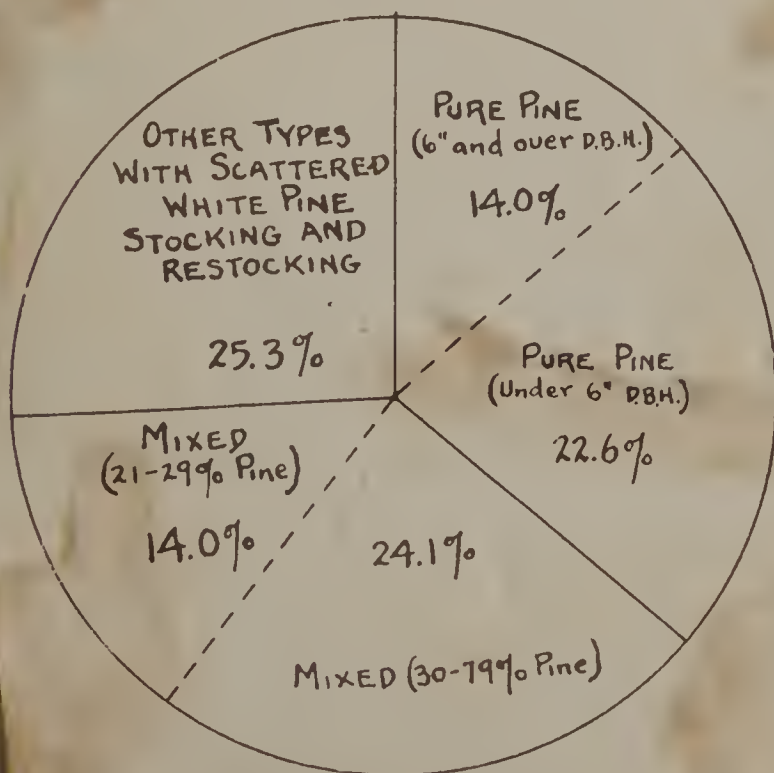 OTHER TYPES
WITH SCATTERED
WHITE PINE
STOCKING AND
RESTOCKING
25.3%
PURE PINE
(6" and over D.B.H.)
14.0%
PURE PINE
(Under 6" D.B.H.)
22.6%
MIXED
(21-29% Pine)
14.0%
24.1%
MIXED (30-79% Pine)